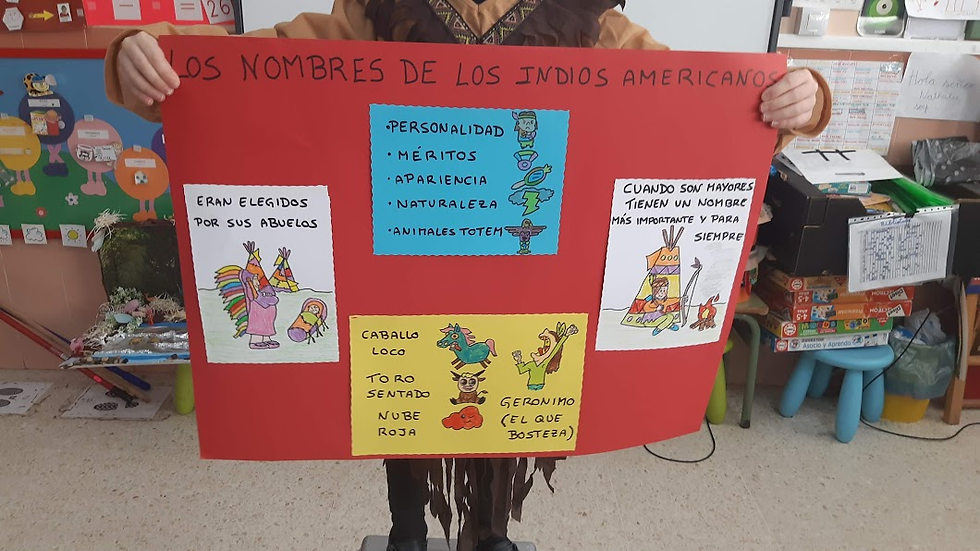 LOS NOMBRES DE LOS INDIOS AMERICANOS
•PERSONALIDAD
• MÉRITOS
• APARIENCIA
• NATURALEZA
•ANIMALES TOTEM
ERAN ELEGIDOS
POR SUS ABUELOS
CUANDO SON MAYORES
TIENEN UN NOMBRE
MÁS IMPORTANTE Y PARA
SIEMPRE
CABALLO
LOCO
TORO
SENTADO
NUBE
ROJA
GERONIMO
(EL QUE
BOSTEZA)
26
Hola